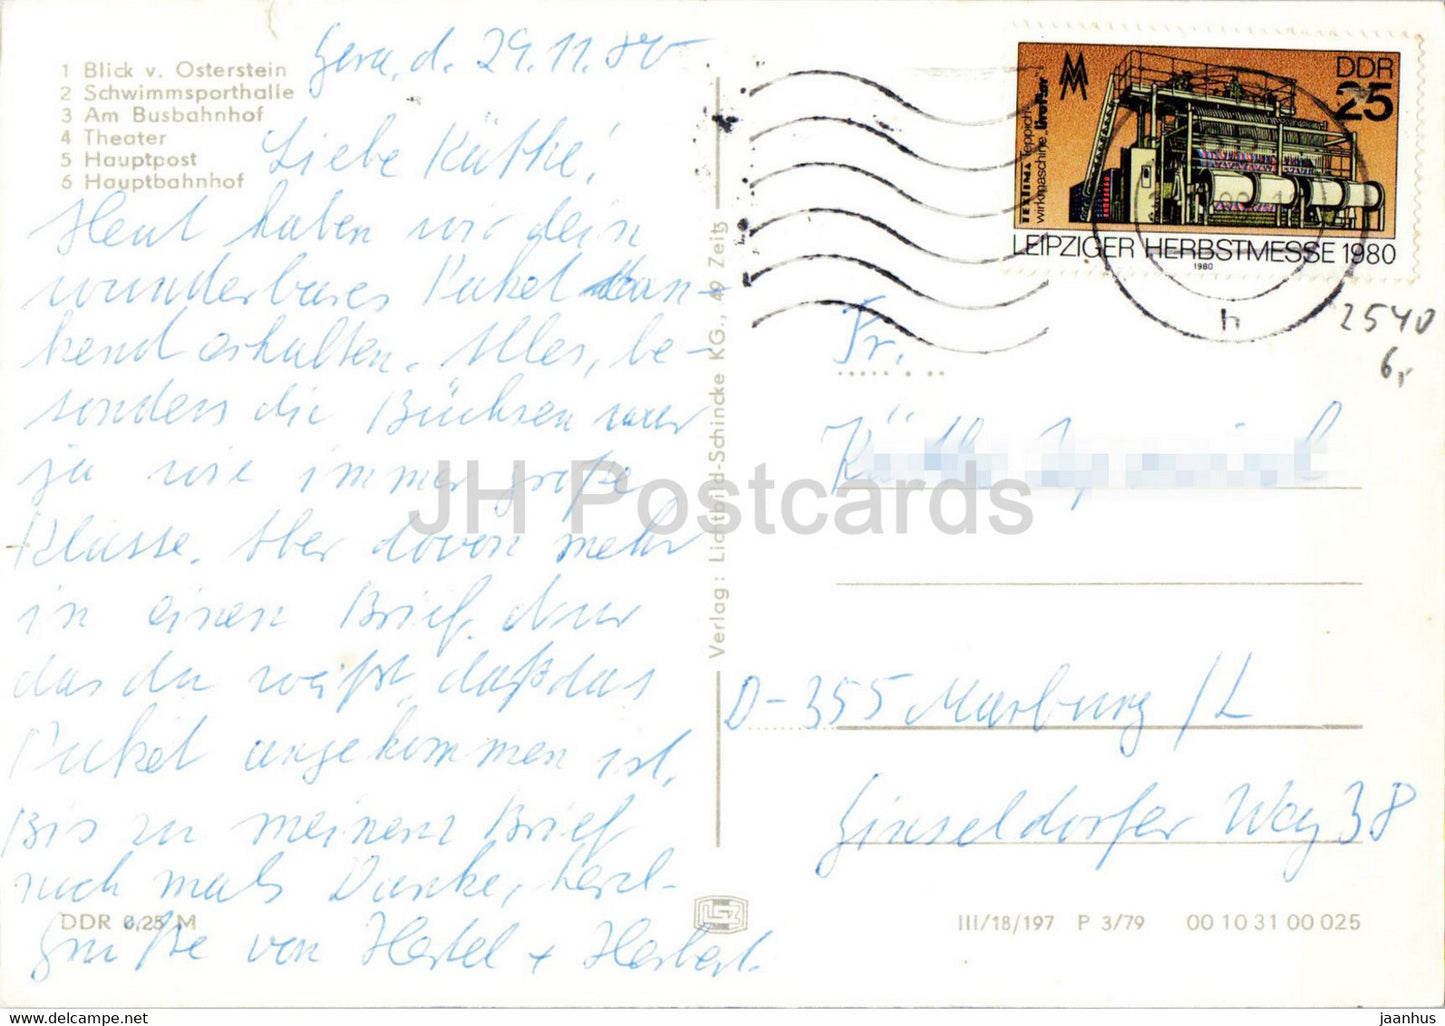 1 Blick v. Osterstein
2 Schwimmsporthalle
3 Am Busbahnhof
4 Theater
5 Hauptpost
6 Hauptbahnhof
Gera, d. 29.11.80
Liebe Käthe,
Heut haben wir dein
wunderbares Paket dan-
kend erhalten. Alles, be-
sonders die Büchsen war
ja wie immer große
Klasse. Aber davon mehr
in einen Brief, nur
das du weißt, daß das
Paket angekommen ist.
Bis zu meinem Brief
noch mals Danke, herzl.
Grüße von + Herbert.
DDR 0,25 M
Verlag: Lichtbild-Schincke KG., 49 Zeitz
DDR
25
TEXTIMA Teppich-
wirkmaschine
LEIPZIGER HERBSTMESSE 1980
1980
h
2540
6,
Fr.
Käthe
D-355 Marburg /L
Ginseldorfer Weg 38
III/18/197 P 3/79 00 10 31 00 025
JH Postcards
jaanhus